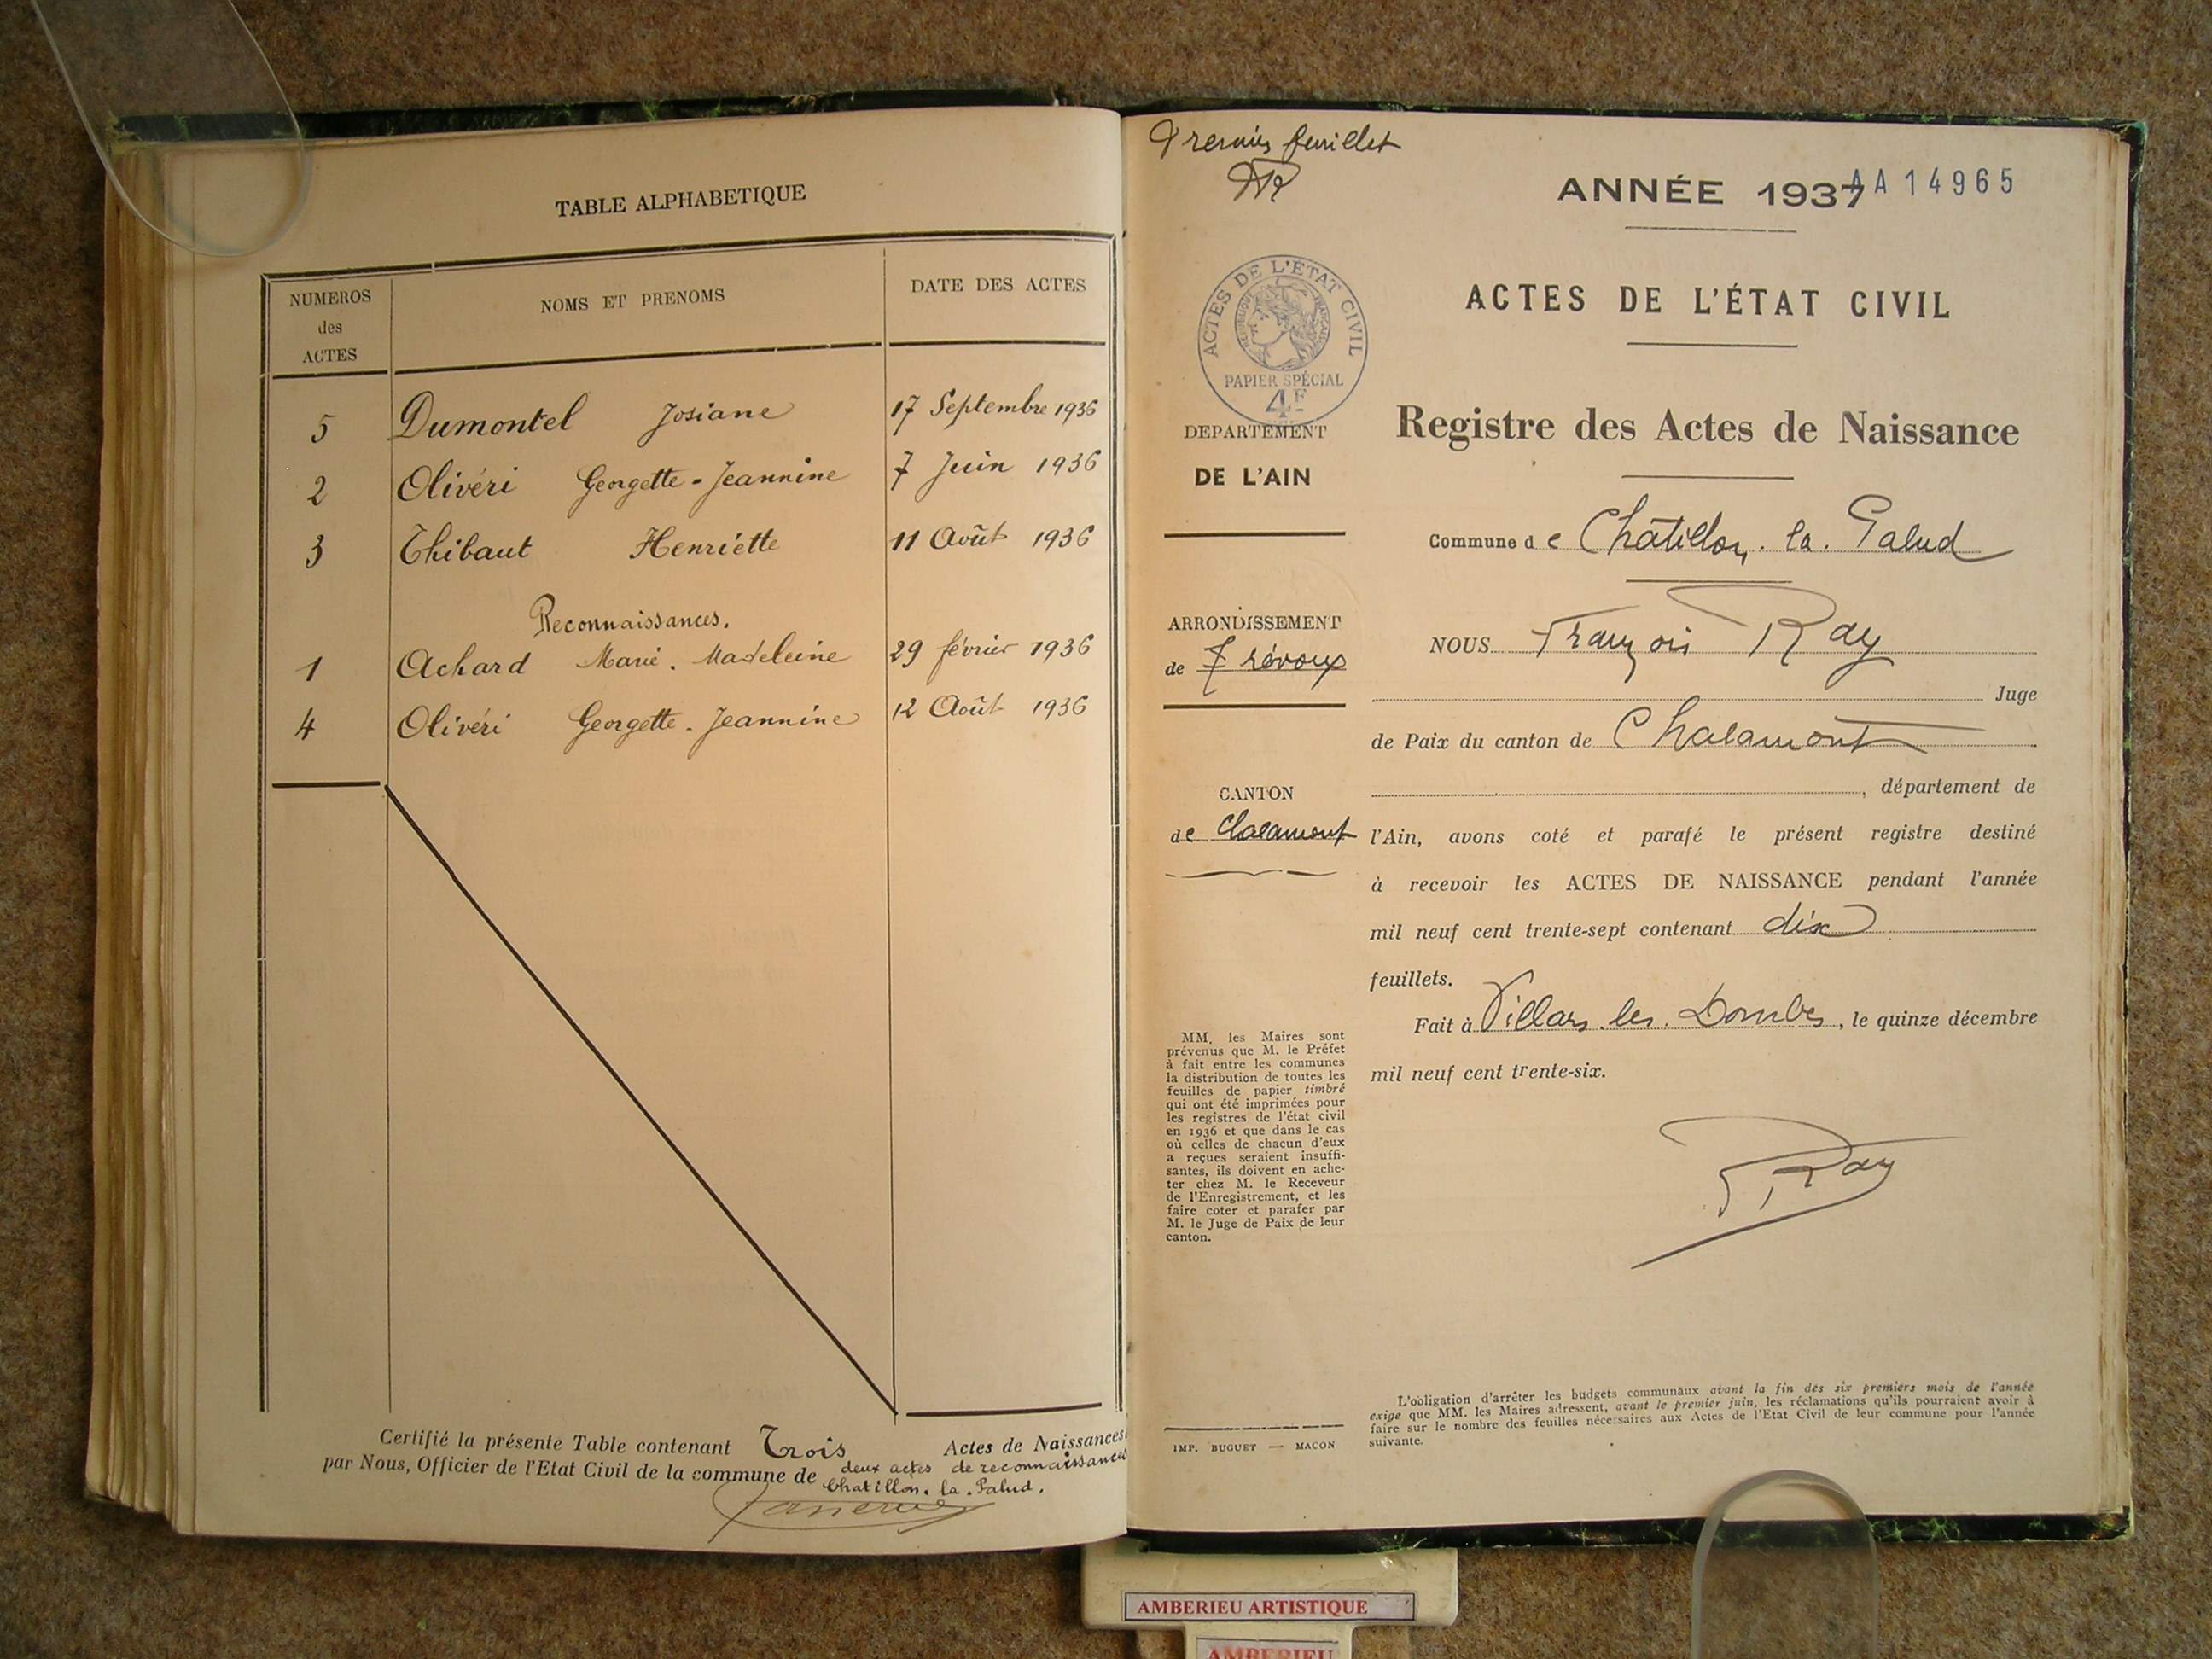 TABLE ALPHABETIQUE
NUMEROS
des
ACTES
NOMS ET PRENOMS
DATE DES ACTES
5 Dumontel Josiane 17 Septembre 1936
2 Olivéri Georgette-Jeannine 7 Juin 1936
3 Thibaut Henriette 11 Août 1936
Reconnaissances.
1 Achard Marie. Madeleine 29 février 1936
4 Olivéri Georgette. Jeannine 12 Août 1936
Certifié la présente Table contenant Trois Actes de Naissances
deux actes de reconnaissances
par Nous, Officier de l'Etat Civil de la commune de
Chatillon. la. Palud.
Premier feuillet
ANNÉE 1937
AA14965
ACTES DE L'ÉTAT CIVIL
REPUBLIQUE FRANÇAISE
PAPIER SPÉCIAL
4F
DEPARTEMENT
DE L'AIN
ARRONDISSEMENT
de Trévoux
CANTON
de Chalamont
MM. les Maires sont
prévenus que M. le Préfet
à fait entre les communes
la distribution de toutes les
feuilles de papier timbré
qui ont été imprimées pour
les registres de l'état civil
en 1936 et que dans le cas
où celles de chacun d'eux
a reçues seraient insuffi-
santes, ils doivent en ache-
ter chez M. le Receveur
de l'Enregistrement, et les
faire coter et parafer par
M. le Juge de Paix de leur
canton.
IMP. BUGUET — MACON
ACTES DE L'ÉTAT CIVIL
Registre des Actes de Naissance
Commune de Châtillon. la. Palud
NOUS François Ray
Juge
de Paix du canton de Chalamont
, département de
l'Ain, avons coté et parafé le présent registre destiné
à recevoir les ACTES DE NAISSANCE pendant l'année
mil neuf cent trente-sept contenant dix
feuillets.
Fait à Villars les Dombes, le quinze décembre
mil neuf cent trente-six.
Ray
L'ooligation d'arrêter les budgets communaux avant la fin des six premiers mois de l'année
exige que MM. les Maires adressent, avant le premier juin, les réclamations qu'ils pourraient avoir à
faire sur le nombre des feuilles nécessaires aux Actes de l'Etat Civil de leur commune pour l'année
suivante.
AMBERIEU ARTISTIQUE
AMBERIEU